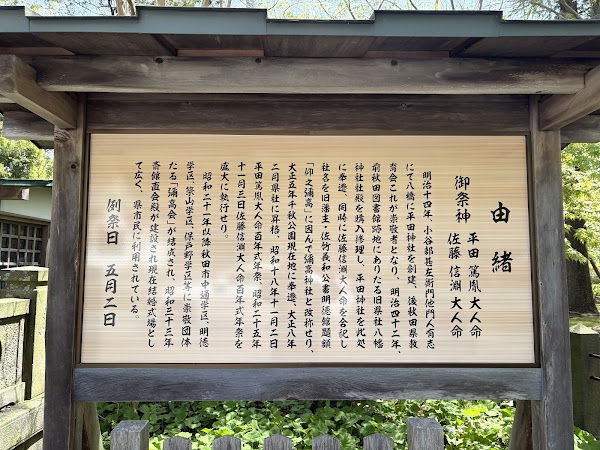 由緒
御祭神 平田篤胤大人命
佐藤信淵大人命
明治十四年、小谷部甚左衛門他門人有志
にて八橋に平田神社を創建、後秋田県教
育会これが崇敬者となり、明治四十二年、
前秋田図書館跡地にありたる旧県社八幡
神社社殿を購入修理し、平田神社を此処
に奉遷、同時に佐藤信淵大人命を合祀し
社名を旧藩主・佐竹義和公書明徳館題額
「仰之弥高」に因んで彌高神社と改称せり、
大正五年千秋公園現在地に奉遷、大正八年
二月県社に昇格、昭和十八年十一月二日
平田篤胤大人命百年式年祭、昭和二十五年
十一月三日佐藤信淵大人命百年式年祭を
盛大に執行せり。
昭和二十一年以降秋田市中通学区、明徳
学区、築山学区、保戸野学区等に崇敬団体
たる「彌高会」が結成され、昭和三十三年
斎館直会殿が建設され現在結婚式場とし
て広く、県市民に利用されている。
例祭日 五月二日